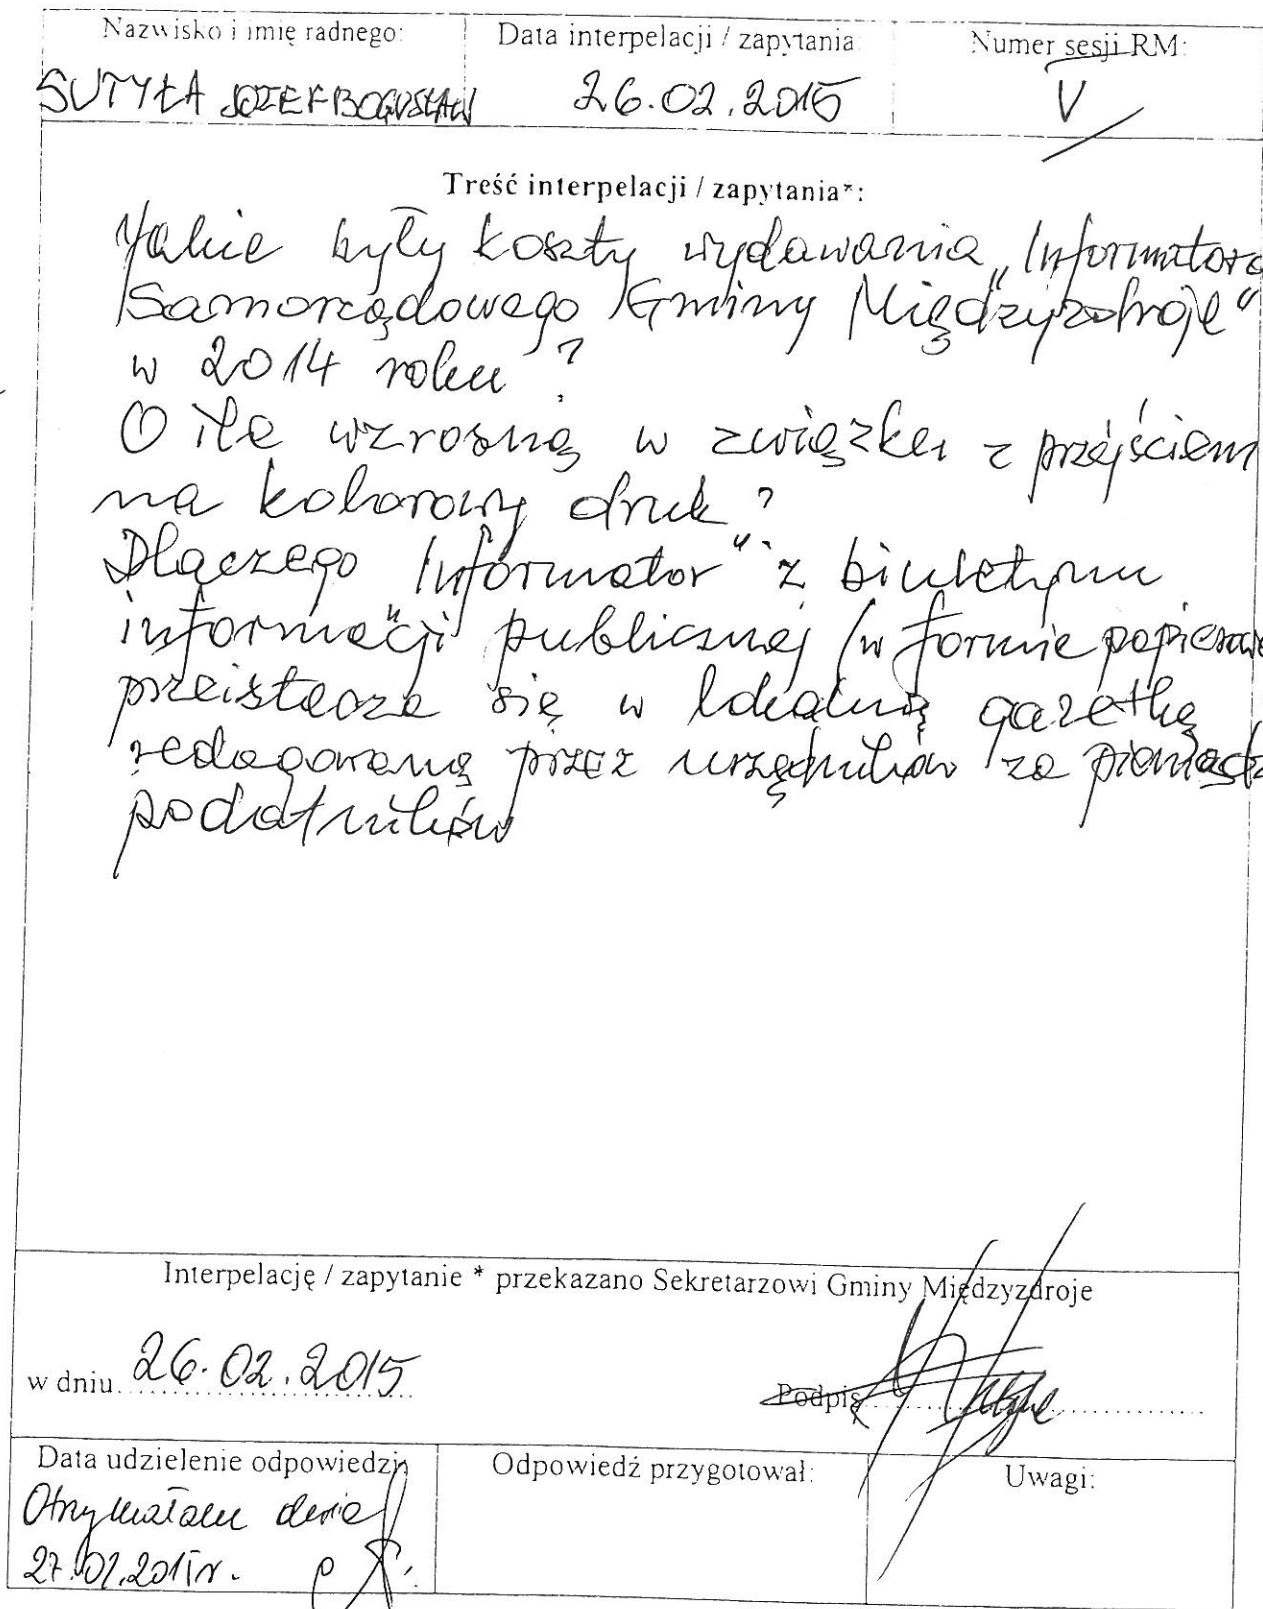 Nazwisko i imię radnego: Data interpelacji / zapytania: Numer sesji RM:
SUTYŁA JÓZEF BOGUSŁAW 26.02.2015 V
Treść interpelacji / zapytania*:
Jakie były koszty wydawania „Informatora
Samorządowego Gminy Międzyzdroje"
w 2014 roku?
O ile wzrosną w związku z przejściem
na kolorowy druk?
Dlaczego „Informator" z biuletynu
informacji publicznej /w formie papierowej
przeistacza się w lokalną gazetkę
redagowaną przez urzędników za pieniądze
podatników
Interpelację / zapytanie * przekazano Sekretarzowi Gminy Międzyzdroje
w dniu 26.02.2015 Podpis
Data udzielenie odpowiedzi Odpowiedź przygotował: Uwagi:
Otrzymałam dnia
27.02.2015r.